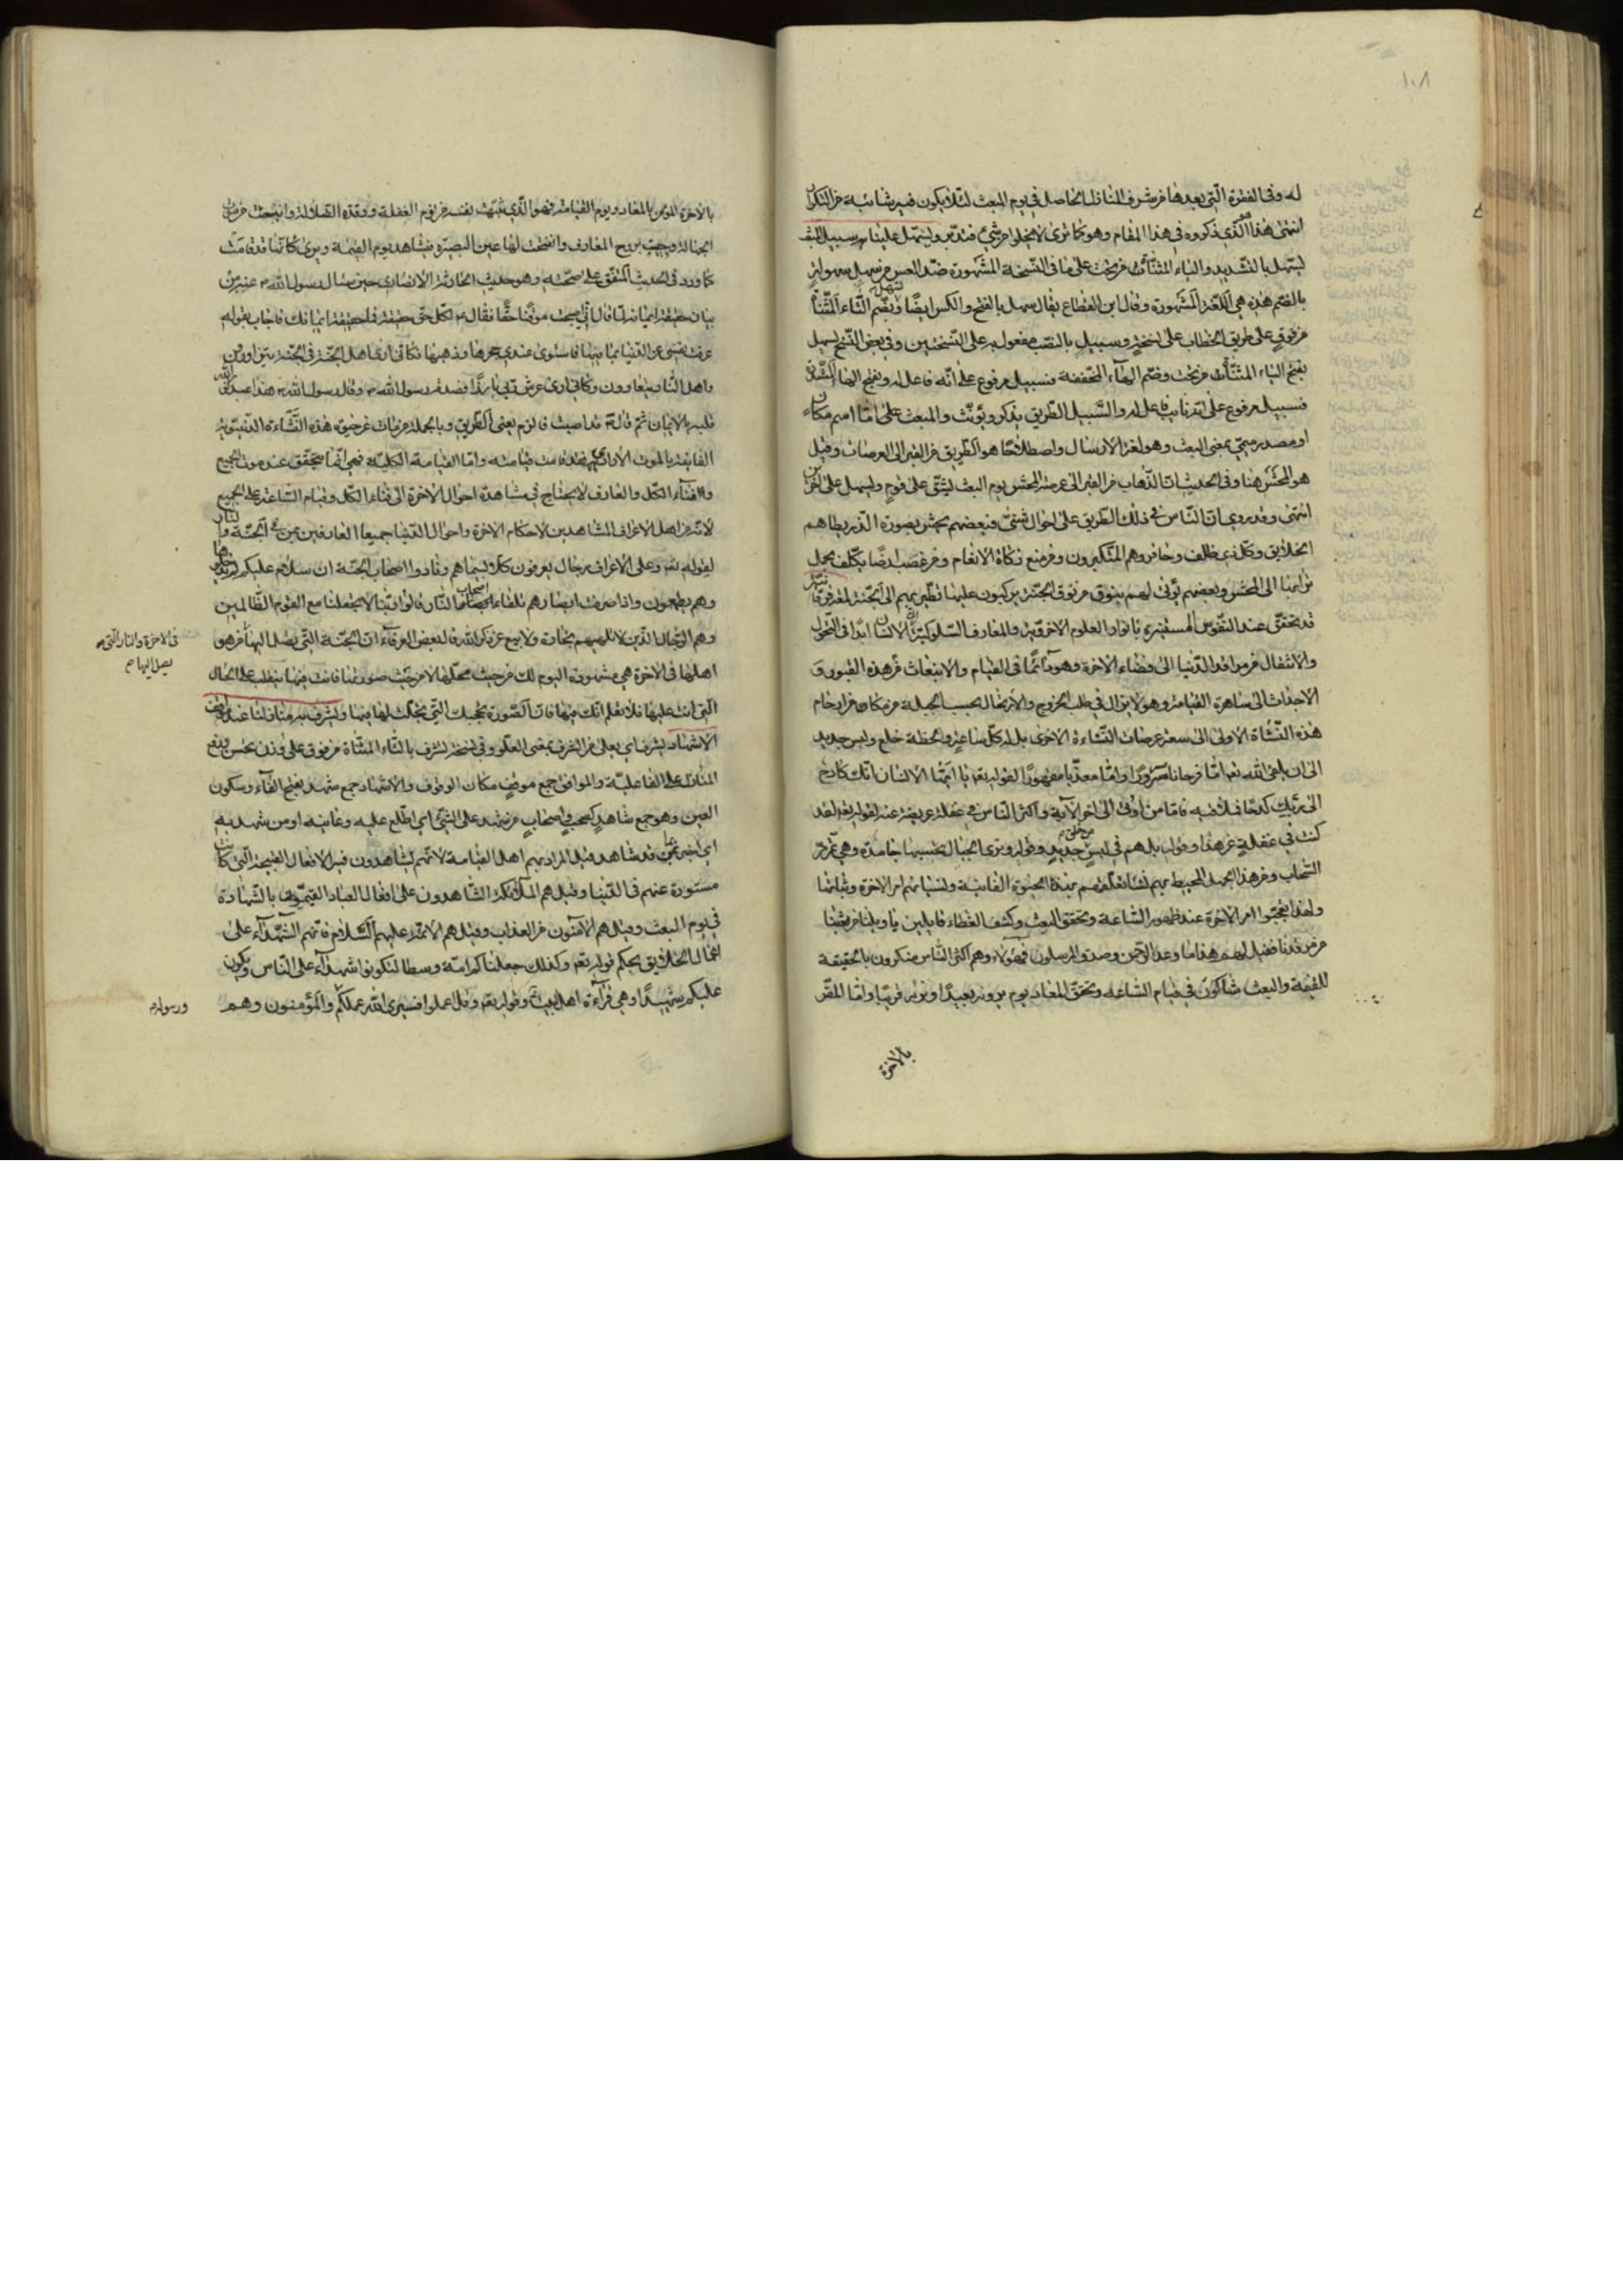 ١٠٨
له وفى الفقرة التى بعدها من شرف المنازل الحاصل فى يوم البعث لئلا يكون فيه شائبة من التكرار
انتهى هذا الذى ذكروه فى هذا المقام وهو كما ترى لا يخلوا من شئ فتدبر ويسهل علينا به سبيل المبعث
ليسهل بالتشديد والياء المثناة من تحت على ما فى النسخة المشهورة ضد العسر من سهل سهولة
بالضم هذه هى اللغة المشهورة وقال ابن القطاع يقال سهل بالفتح والكسر ايضا وبضم التاء المثناة
من فوق على طريق الخطاب على نسخة وسبيل بالنصب مفعول به على النسختين وفى بعض النسخ ليسهل
بفتح الياء المثناة من تحت وضم الهاء المخففة فسبيل مرفوع على انه فاعل له وبفتح الهاء المشددة
فسبيل مرفوع على انه نايب فاعل له والسبيل الطريق يذكر ويؤنث والمبعث على اما اسم مكان
او مصدر ميمى بمعنى البعث وهو لغة الارسال واصطلاحا هو الطريق من القبر الى العرصات وقيل
هو المحشر هنا وفى الحديث ان الذهاب من القبر الى عرصة المحشر يوم البعث ليشق على قوم وليسهل على آخرين
انتهى وقد روى ان الناس فى ذلك الطريق على احوال شتى فبعضهم يحشر بصورة الذر يطاهم
الخلايق وكل ذى ظلف وحافر وهم المتكبرون ومن منع زكاة الانعام ومن غصب ارضا يكلف بحمل
ترابها الى المحشر وبعضهم يؤتى لهم بنوق من نوق الجنة يركبون عليها تطير بهم الى الجنة لمعرفة
قد تحقق عند النفوس المستنيرة بانوار العلوم الاخروية والمعارف السلوكية ان الانسان ابدا فى التحول
والانتقال من مراقد الدنيا الى فضاء الاخرة وهو دائما فى القيام والانبعاث من هذه القبور و
الاجداث الى ساهرة القيامة وهو لا يزال فى طلب الخروج والارتحال بحسب الجبلة من مكامن ارحام
هذه النشاة الاولى الى سعة عرصات النشاءة الاخرى بل له كل ساعة ولحظة خلع ولبس جديد
الى ان يلقى الله تعه اما فرحانا مسرورا او اما معذبا مقهورا لقوله تعه يا ايها الانسان انك كادح
الى ربك كدحا فملاقيه فاما من اوتى الى اخر الآية واكثر الناس فى غفلة عنه لقوله تعه لقد
كنت فى غفلة من هذا وقوله بل هم فى لبس من خلق جديد وقوله وترى الجبال تحسبها جامدة وهى تمر مر
السحاب ومن هذا الجهل المحيط بهم بهذه الحيوة الفانية ونسيانهم امر الاخرة وثباتها
ولهذا تعجبوا امر الاخرة عند ظهور الساعة وتحقق البعث وكشف الغطاء قايلين يا ويلنا من بعثنا
من مرقدنا فقيل لهم هذا ما وعد الرحمن وصدق المرسلون فهؤلاء وهم اكثر الناس منكرون بالحقيقة
للقيمة والبعث شاكون فى قيام الساعة وتحقق المعاد يوم يرونه بعيدا ونراه قريبا واما المقر
بالاخرة
بالاخرة المؤمن بالمعاد ويوم القيامة فهو الذى تنبهت نفسه من نوم الغفلة ورقدة الضلالة وانبعث من
الجهالة وحييت بروح المعارف وانفتحت لها عين البصيرة ويشاهد يوم القيمة ويرى كانها قد قامت
كما ورد فى الحديث المتفق على صحته وهو حديث الحارثة الانصارى حين سال رسول الله ص عنه
بيان حقيقة ايمانه لما قال انى اصبحت مؤمنا حقا فقال ص لكل حق حقيقة فما حقيقة ايمانك فاجاب بقوله
عزفت نفسى عن الدنيا فاستوى عندى حجرها وذهبها فكانى ارى اهل الجنة فى الجنة يتزاورون
واهل النار يتعاوون وكانى ارى عرش ربى بارزا فصدقه رسول الله ص وقال رسول الله ص هذا عبد نور الله
قلبه بالايمان ثم قال ص قد اصبت فالزم يعنى الطريق وبالجملة من مات عن هذه النشاءة الدنيوية
الفانية بالموت الارادى فقد قامت قيامته واما القيامة الكلية فهى انما تتحقق عند موت الجميع
والفناء الكل والعارف لا يحتاج فى مشاهدة احوال الاخرة الى فناء الكل وقيام الساعة على الجميع
لانه من اهل الاعراف المشاهدين لاحكام الاخرة واحوال الدنيا جميعا العارفين من فى الجنة والنار
لقوله تعه وعلى الاعراف رجال يعرفون كلا بسيماهم ونادوا اصحاب الجنة ان سلام عليكم لم يدخلوها
وهم يطمعون واذا صرفت ابصارهم تلقاء اصحاب النار قالوا ربنا لا تجعلنا مع القوم الظالمين
وهم الرجال الذين لا تلهيهم تجارة ولا بيع عن ذكر الله قال بعض العرفاء ان الجنة التى يصل اليها من هو
فى الاخرة والنار التى
يصل اليها
اهلها فى الاخرة هى مشهودة اليوم لك من حيث محلها لا من حيث صورتها فانت فيها تتقلب على الحال
التى انت عليها فلا تعلم انك فيها فان الصورة تحجبك التى تجلت لها فيها وليشرف به منازلنا عند مواقف
الاشهاد يشرف اى يعلى من الشرف بمعنى العلو وفى نسخة تشرف بالتاء المثناة من فوق على وزن يحسن ورفع
المنازل على الفاعلية والمواقف جمع موقف مكان الوقوف والاشهاد جمع شهد بفتح الفاء وسكون
العين وهو جمع شاهد كصحب واصحاب من شهد على الشئ اى اطلع عليه وعاينه او من شهد به
اى اخبر عما قد شاهد قيل المراد بهم اهل القيامة لانهم يشاهدون فيه الافعال القبيحة التى كانت
مستورة عنهم فى الدنيا وقيل هم الملائكة الشاهدون على افعال العباد بالشهادة
فى يوم البعث وقيل هم الآمنون من العذاب وقيل هم الائمة عليهم السلام فانهم الشهداء على
اعمال الخلايق بحكم قوله تعه وكذلك جعلناكم امة وسطا لتكونوا شهداء على الناس ويكون
عليكم شهيدا وهى قرآءة اهل البيت وقوله تعه وقل اعملوا فسيرى الله عملكم والمؤمنون وهم
ورسوله